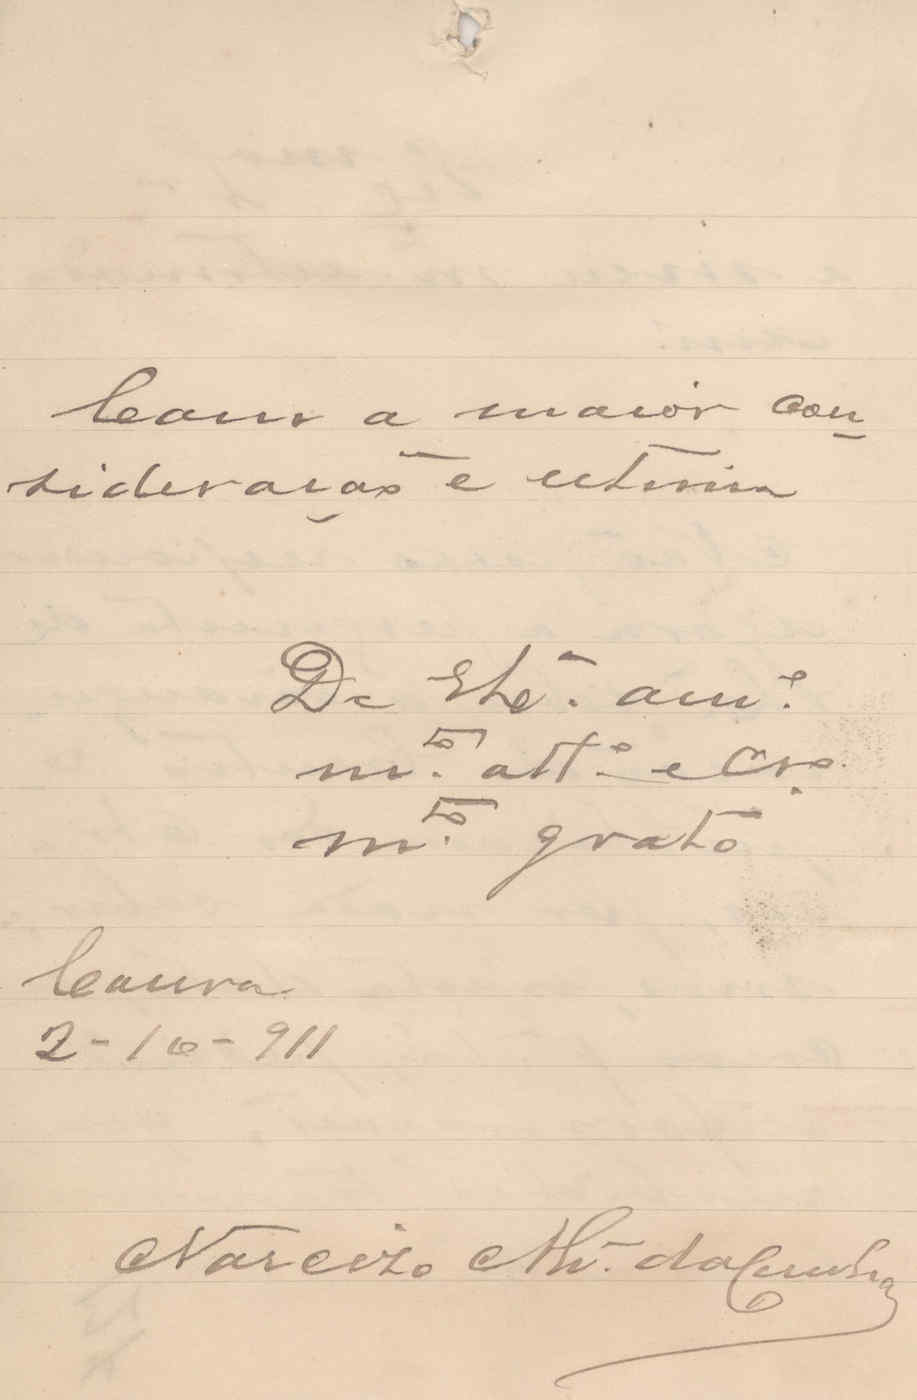 Com a maior con
sideração e estima
De V. Ex.ª am.º
m.to att.º e Cr.º
m.to grato
Coura
2-10-911
Narcizo Alv. da Cunha